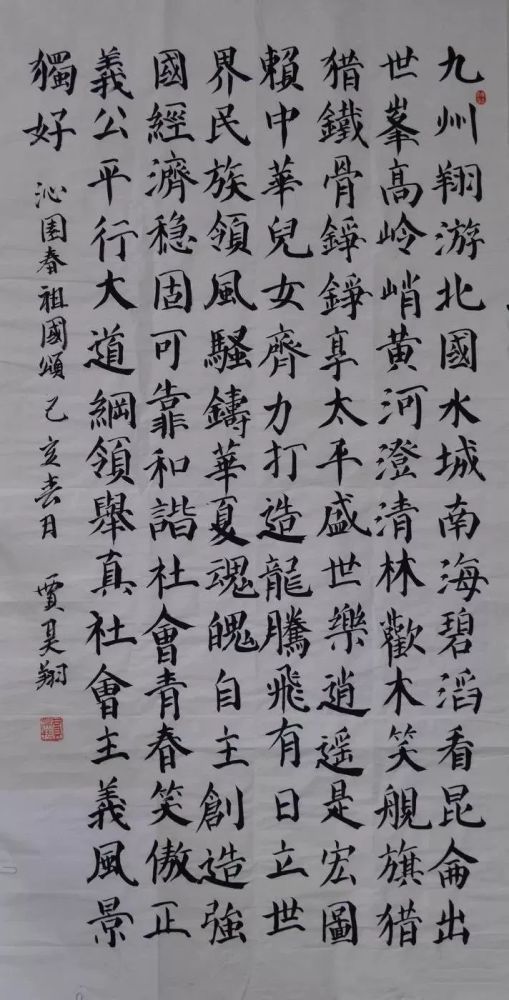 九州翔游北國水城南海碧滔看昆侖出
世峯高岭峭黄河澄清林歡木笑舰旗猎
猎鐵骨錚錚享太平盛世樂逍遥是宏圖
賴中華兒女齊力打造龍騰飛有日立世
界民族領風騷鑄華夏魂魄自主創造強
國經濟稳固可靠和諧社會青春笑傲正
義公平行大道綱領舉真社會主義風景
獨好 沁園春祖國頌 己亥春月 賈昊翔